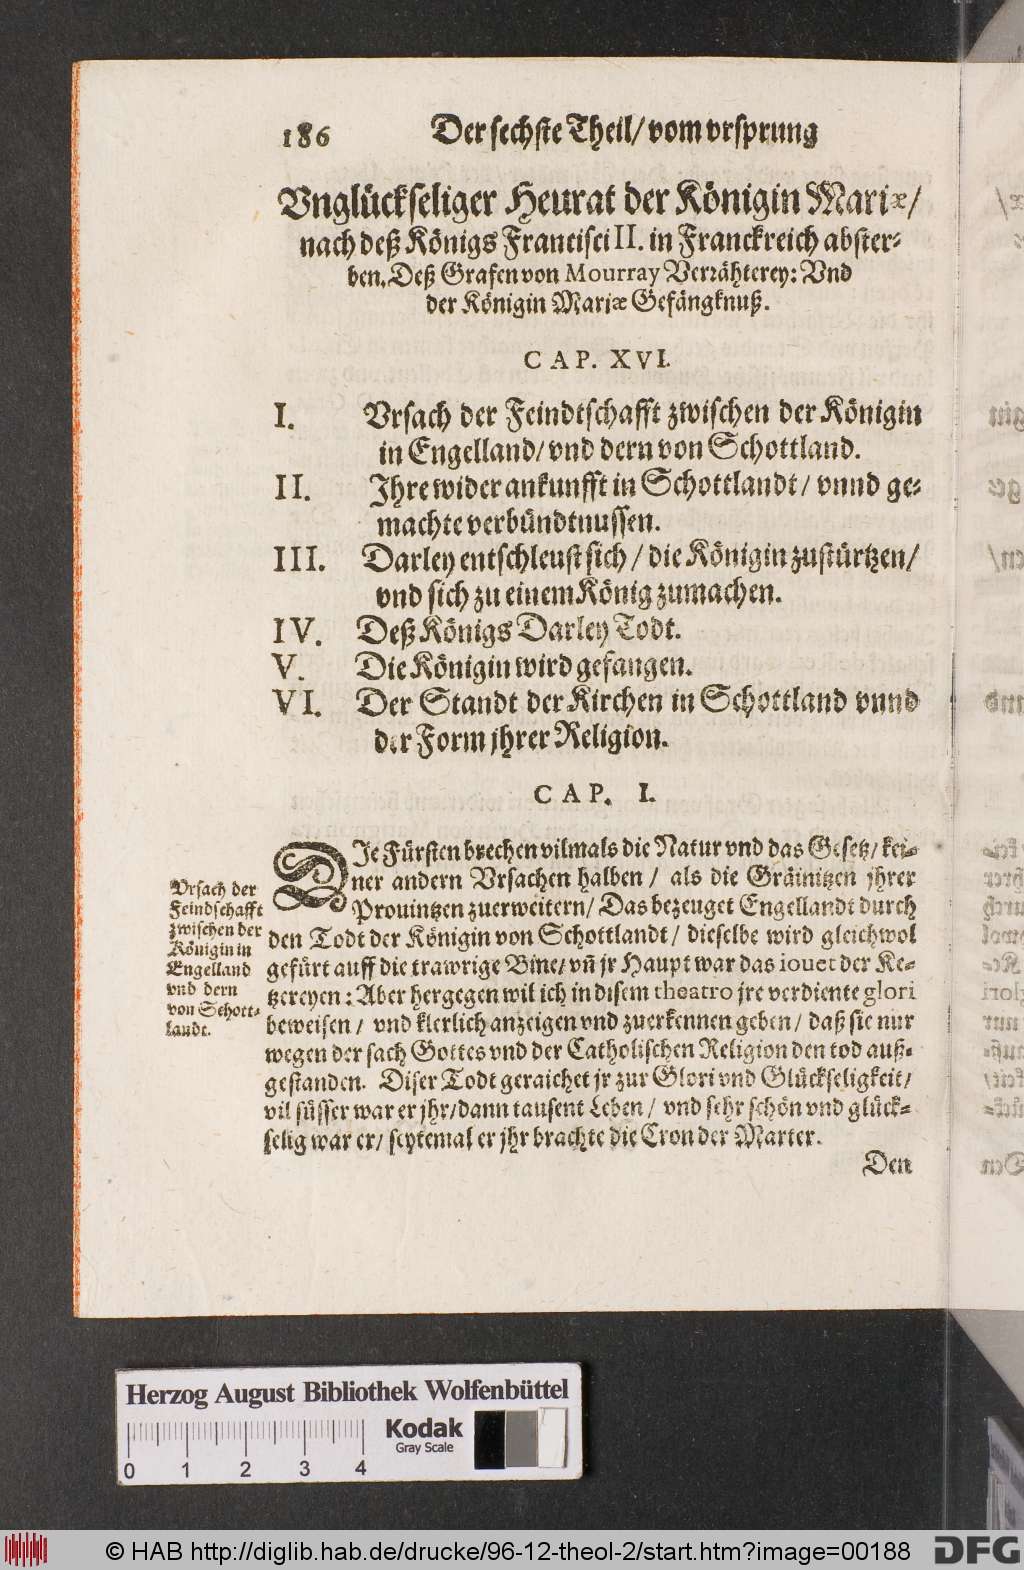 186 Der sechste Theil/ vom vrsprung
Vnglückseliger Heurat der Königin Mariæ/
nach deß Königs Francisci II. in Franckreich abster-
ben. Deß Grafen von Mourray Verrähterey: Vnd
der Königin Mariæ Gefängknuß.
CAP. XVI.
I. Vrsach der Feindtschafft zwischen der Königin
in Engelland/ vnd dern von Schottland.
II. Jhre wider ankunfft in Schottlandt/ vnnd ge-
machte verbündtnussen.
III. Darley entschleust sich/ die Königin zustürtzen/
vnd sich zu einem König zumachen.
IV. Deß Königs Darley Todt.
V. Die Königin wird gefangen.
VI. Der Standt der Kirchen in Schottland vnnd
der Form jhrer Religion.
CAP. I.
DJe Fürsten brechen vilmals die Natur vnd das Gesetz/ kei-
ner andern Vrsachen halben/ als die Gräinitzen jhrer
Prouintzen zuerweitern/ Das bezeuget Engellandt durch
den Todt der Königin von Schottlandt/ dieselbe wird gleichwol
gefürt auff die trawrige Bine/ vñ jr Haupt war das iouet der Ke-
tzereyen: Aber hergegen wil ich in disem theatro jre verdiente glori
beweisen/ vnd klerlich anzeigen vnd zuerkennen geben/ daß sie nur
wegen der sach Gottes vnd der Catholischen Religion den tod auß-
gestanden. Diser Todt geraichet jr zur Glori vnd Glückseligkeit/
vil süsser war er jhr/ dann tausent Leben/ vnd sehr schön vnd glück-
selig war er/ seytemal er jhr brachte die Cron der Marter.
Den
Vrsach der
Feindschafft
zwischen der
Königin in
Engelland
vnd dern
von Schott-
landt.
Herzog August Bibliothek Wolfenbüttel
Kodak
Gray Scale
0 1 2 3 4
© HAB http://diglib.hab.de/drucke/96-12-theol-2/start.htm?image=00188
DFG